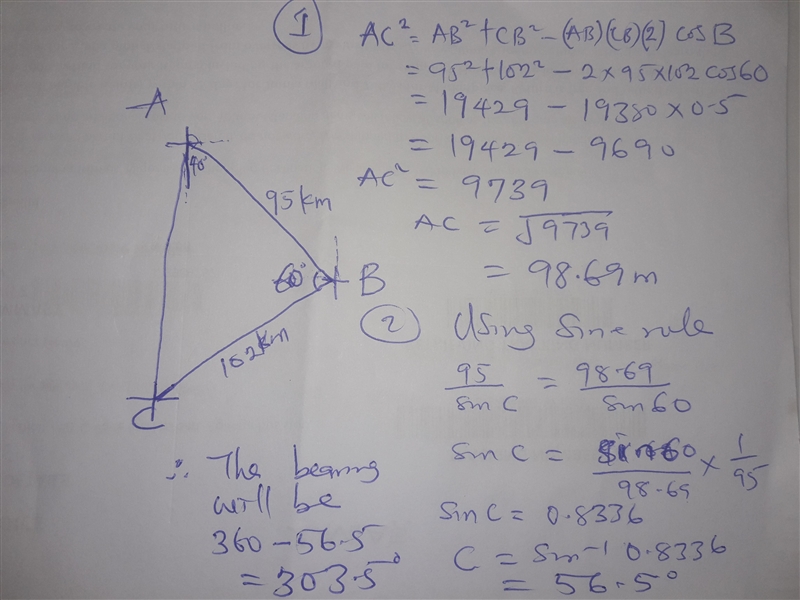 1
AC² = AB² + CB² - (AB)(CB)(2) cos B
= 95² + 102² - 2 × 95 × 102 cos 60
= 19429 - 19380 × 0.5
= 19429 - 9690
AC² = 9739
AC = √9739
= 98.69 m
A
40°
95 km
60°
B
102 km
C
2 Using Sine rule
95/sin C = 98.69/sin 60
sin C = sin 60/98.69 × 1/95
sin C = 0.8336
C = sin⁻¹ 0.8336
= 56.5°
∴ The bearing
will be
360 - 56.5
= 303.5°